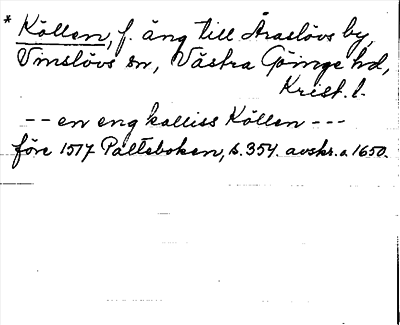 * Köllen, f. äng till Araslövs by,
Vinslövs sn, Västra Göinge hd,
Krist. l.
-- en eng kalliss Köllen ---
före 1517 Palteboken, s. 354. avskr. o. 1650.